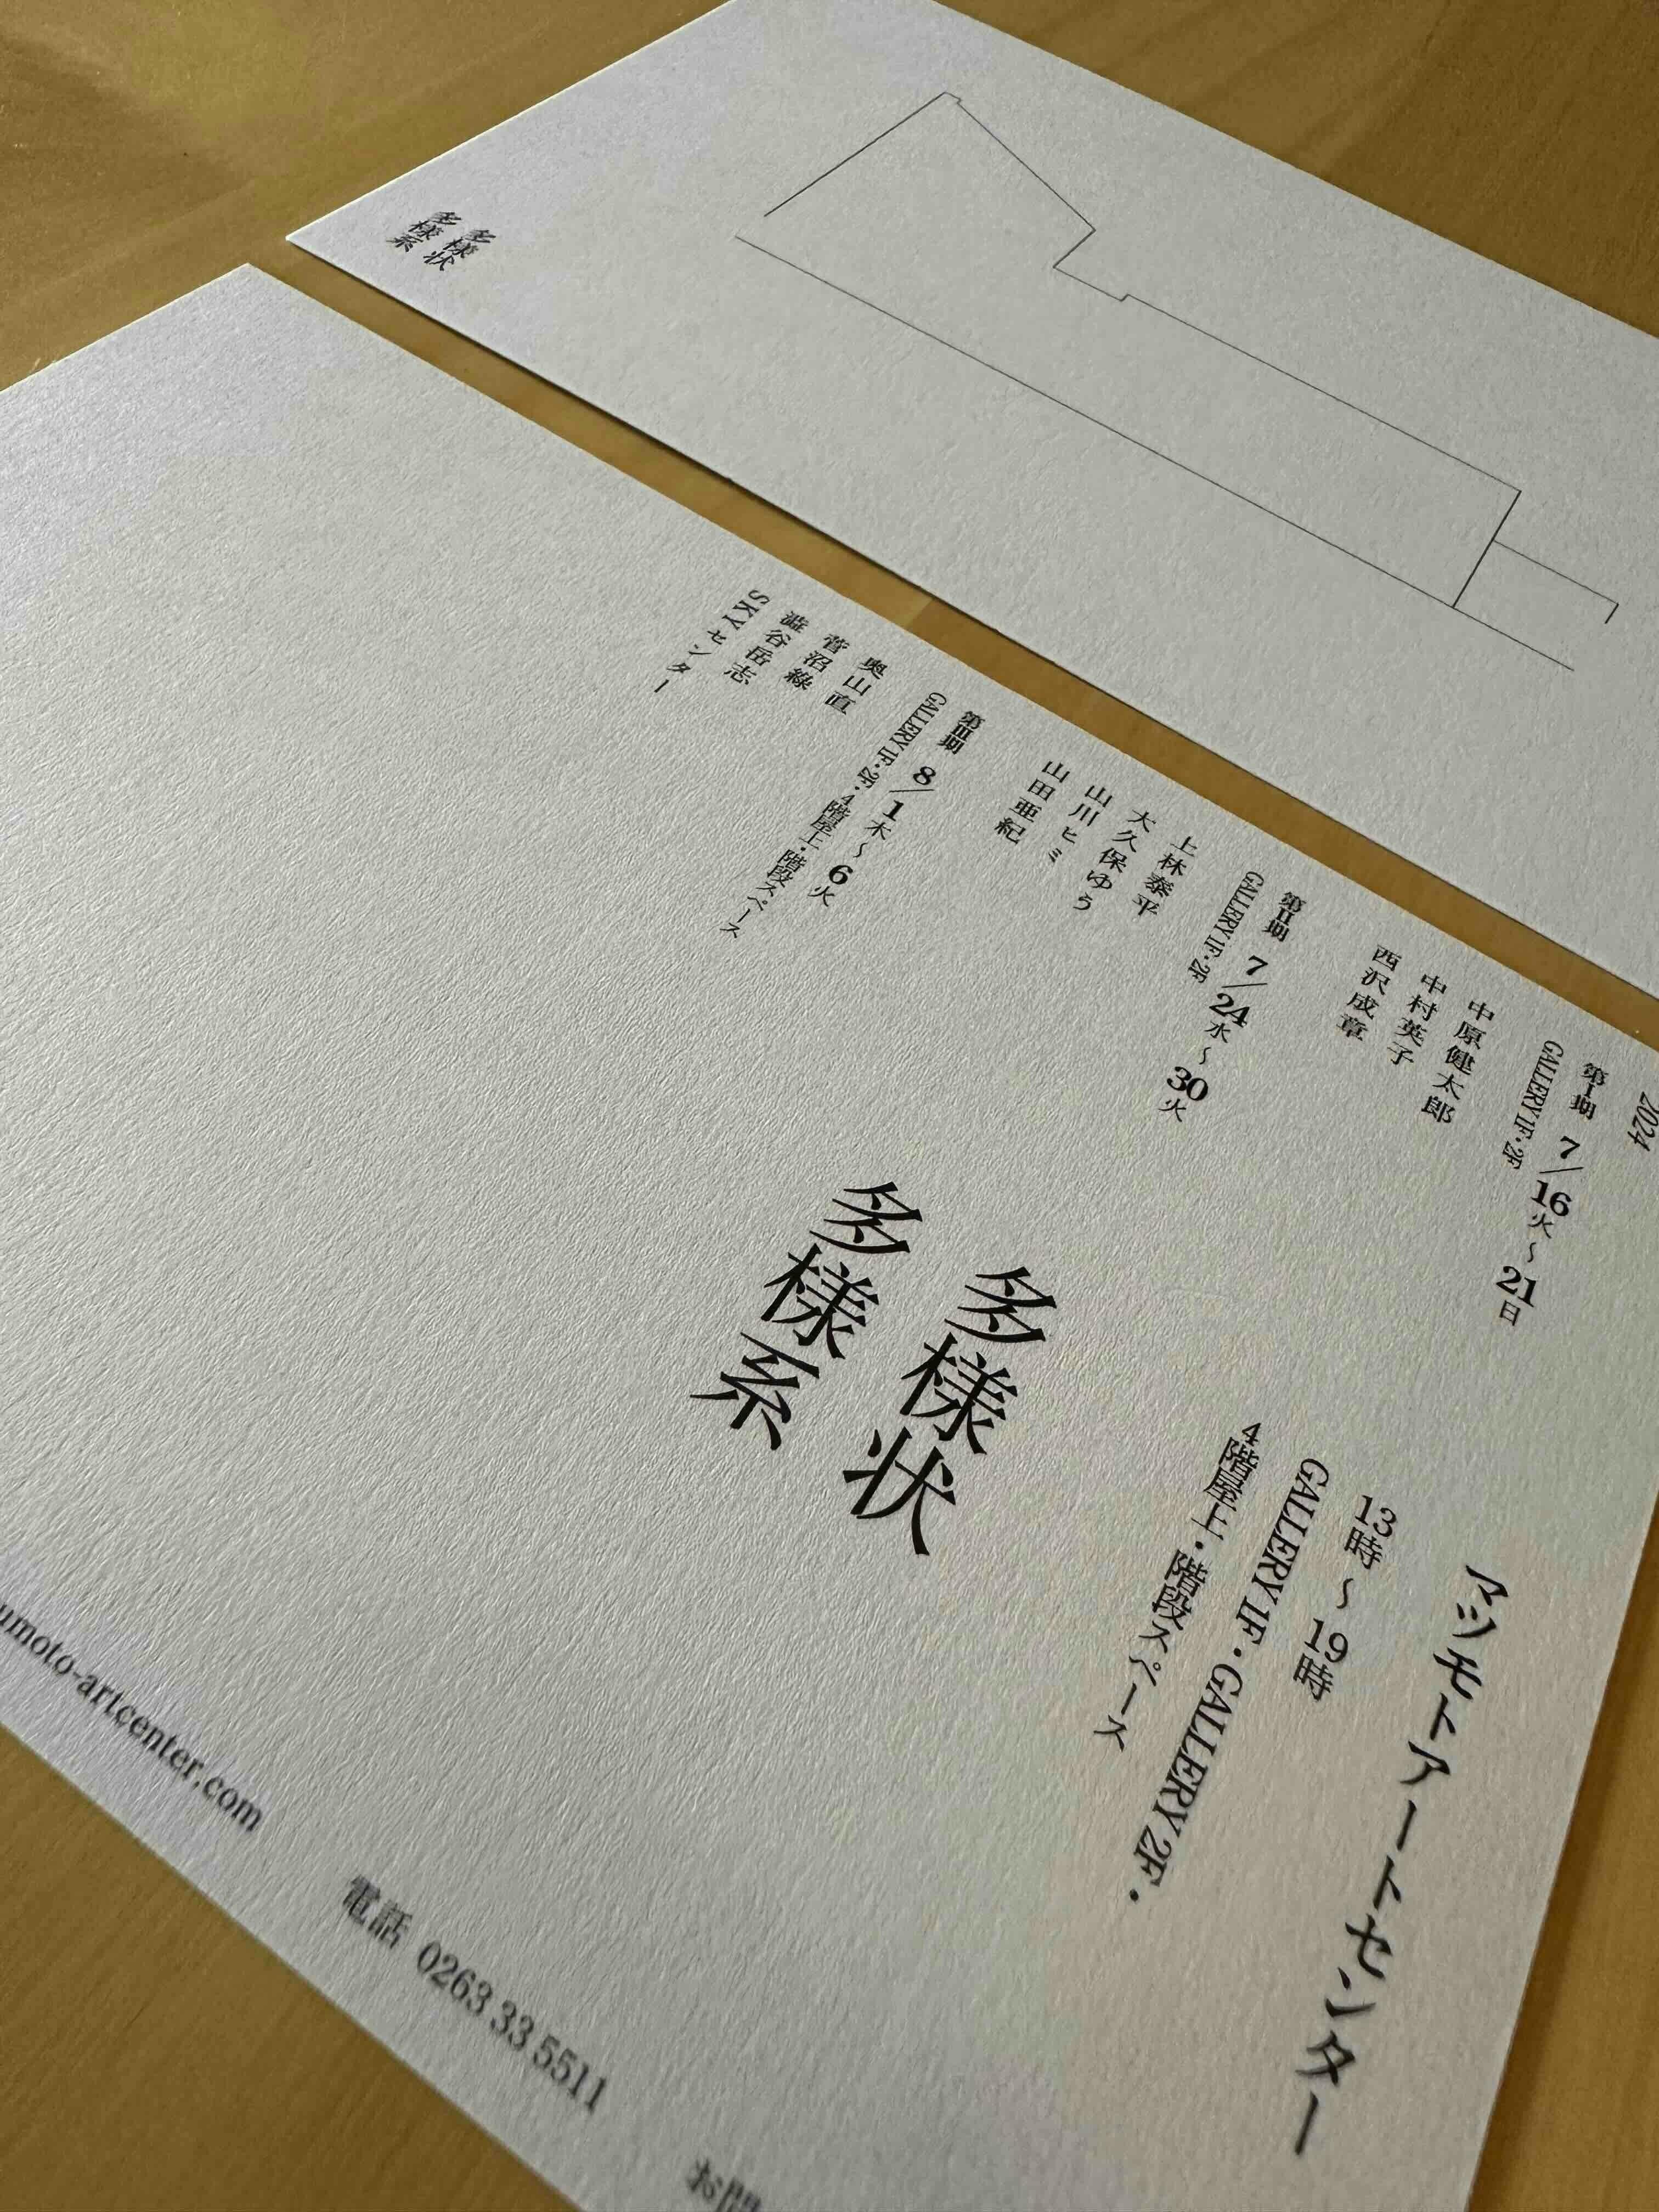 多様状
多様系
2024
第Ⅰ期 7/16火〜21日
GALLERY 1F・2F
中原健太郎
中村英子
西沢成章
第Ⅱ期 7/24水〜30火
GALLERY 1F・2F
上林泰平
大久保ゆう
山川ヒミ
山田亜紀
第Ⅲ期 8/1木〜6火
GALLERY 1F・2F・4階屋上・階段スペース
奥山直
菅沼綠
澁谷岳志
SKYセンター
マツモトアートセンター
13時〜19時
GALLERY 1F・GALLERY 2F・
4階屋上・階段スペース
多様状
多様系
umoto-artcenter.com
電話 0263 33 5511
お問